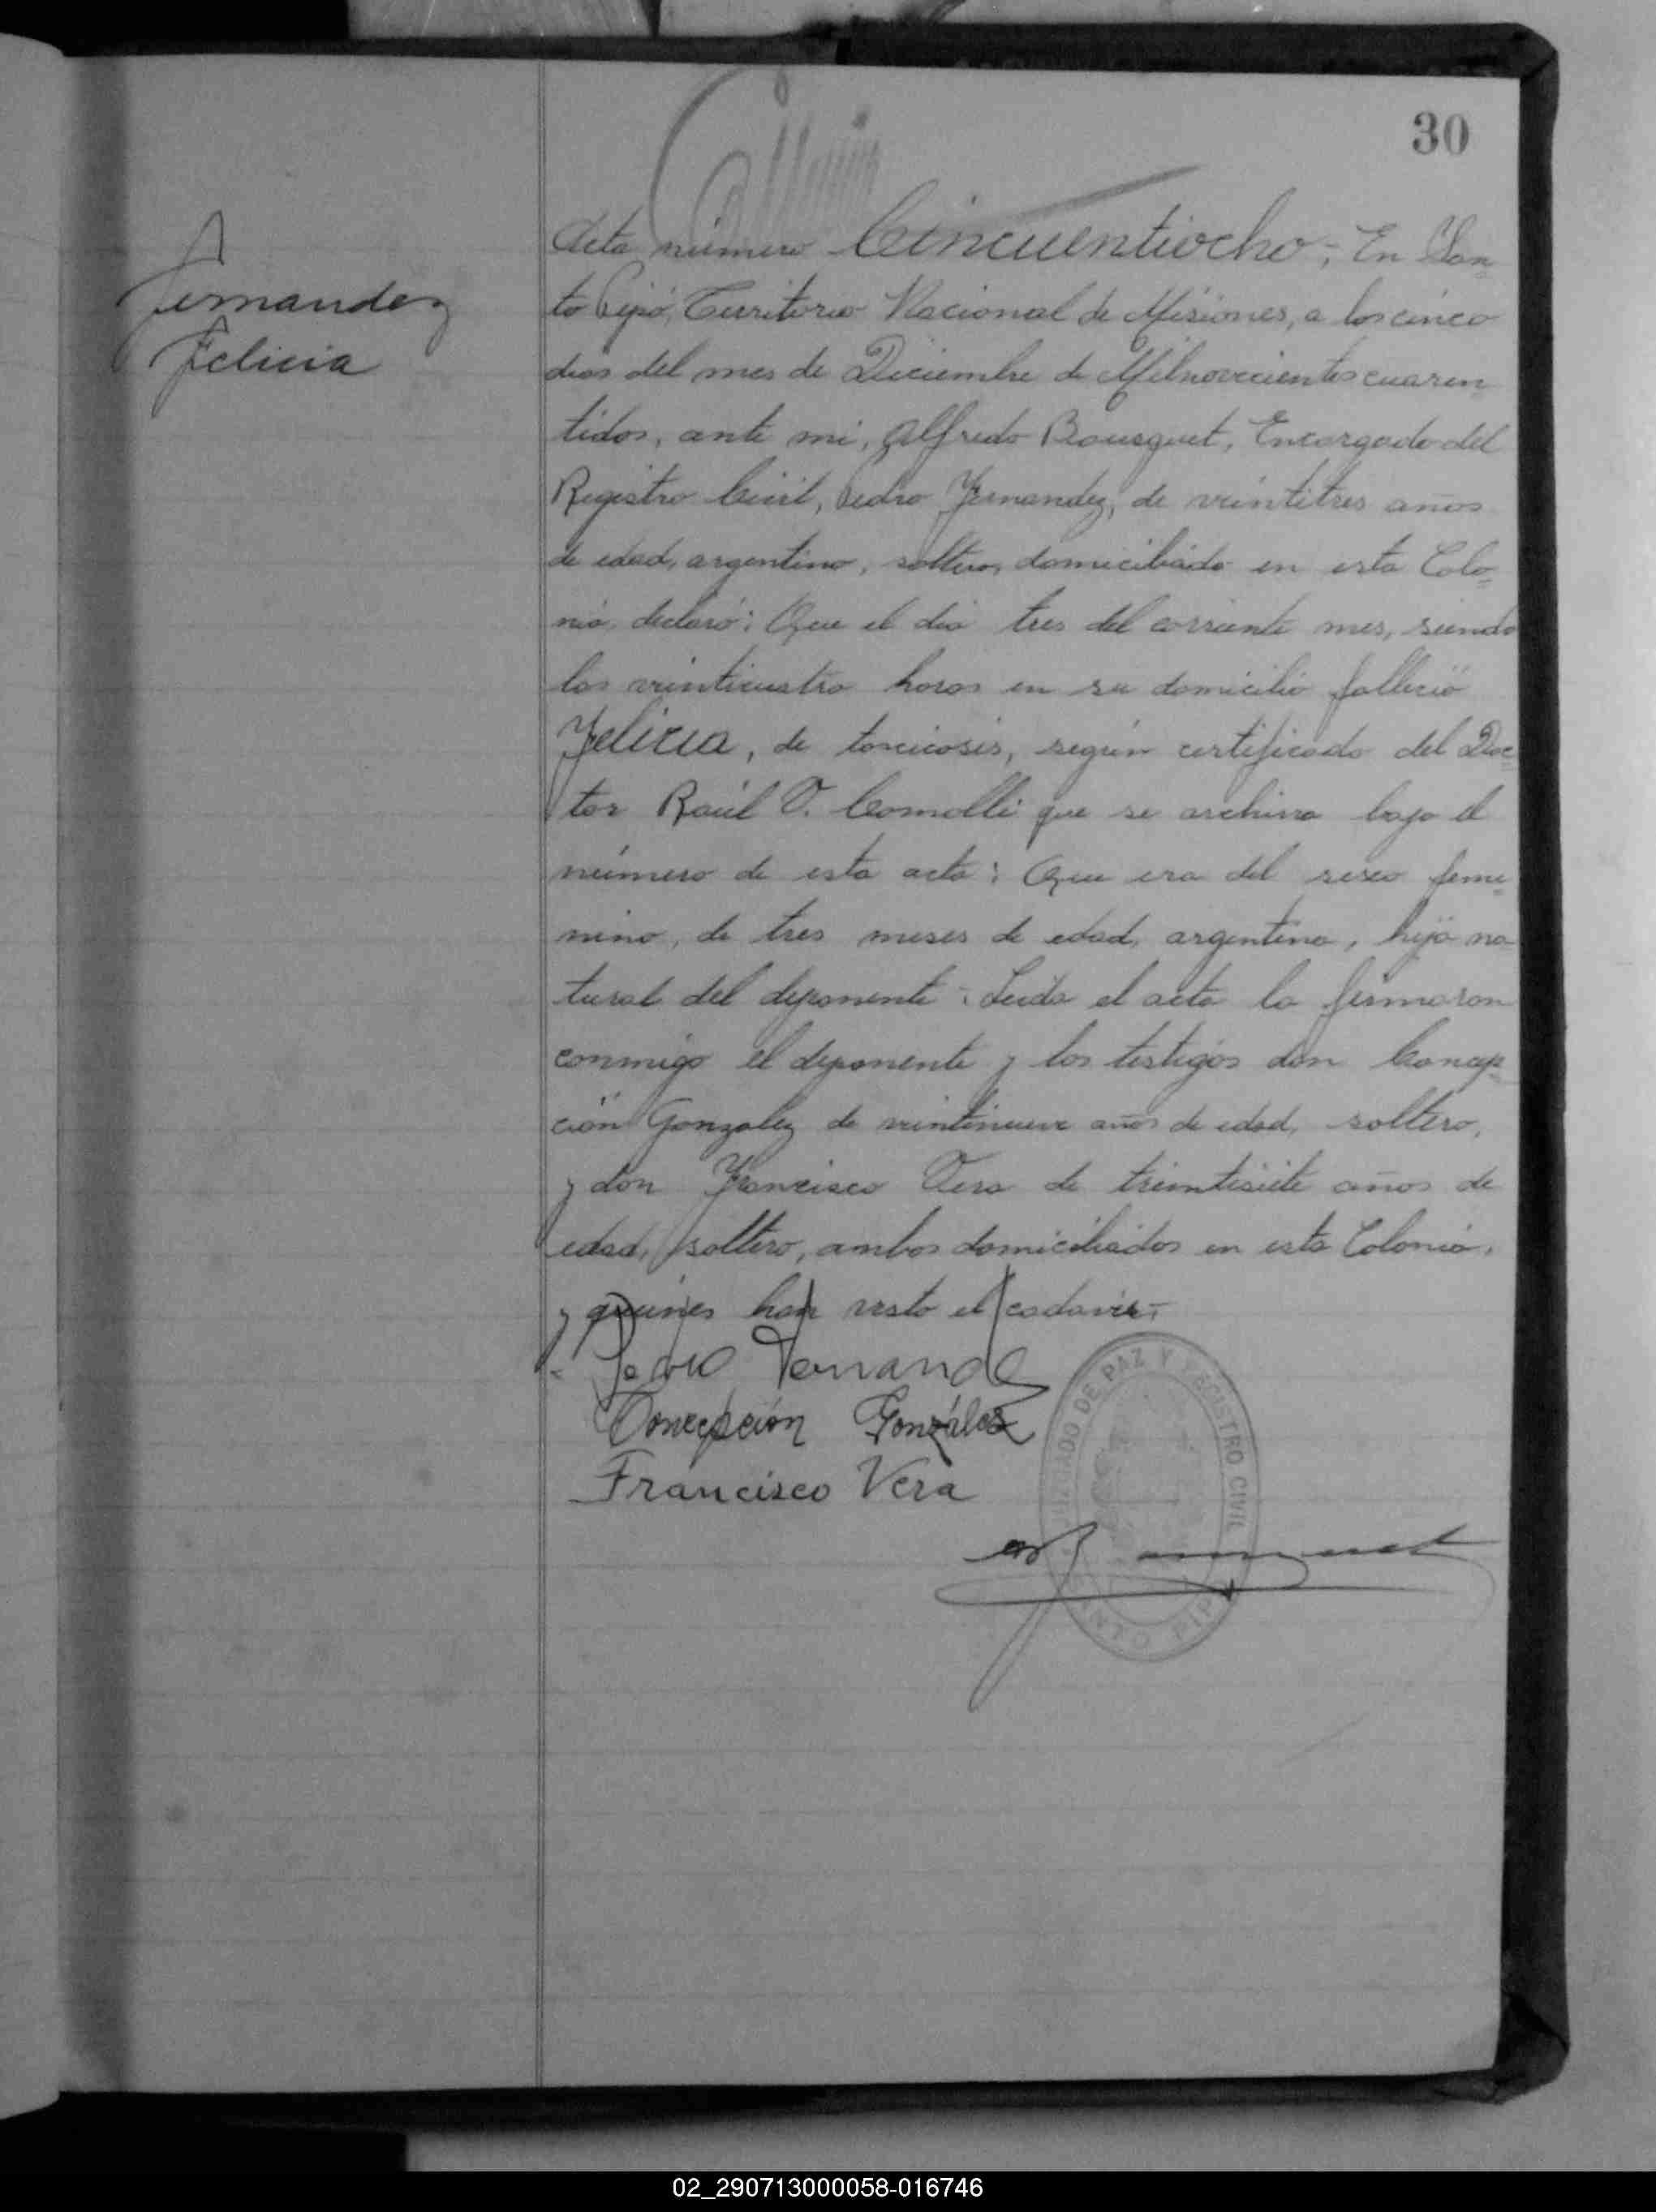 30
Fernandez
Felicia
Acta número Cincuentiocho; En San-
to Pipó, Territorio Nacional de Misiones, a los cinco
dias del mes de Diciembre de Milnovecientos cuaren-
tidos, ante mi, Alfredo Bousquet, Encargado del
Registro Civil, Pedro Fernandez, de veintitres años
de edad, argentino, soltero, domiciliado en esta Colo-
nia, declaró: Que el dia tres del corriente mes, siendo
las veinticuatro horas en su domicilio falleció
Felicia, de toxicosis, según certificado del Doc-
tor Raúl O. Comolli que se archiva bajo el
número de esta acta: Que era del sexo feme-
nino, de tres meses de edad, argentina, hija na-
tural del deponente: Leida el acta la firmaron
conmigo el deponente y los testigos don Concep-
ción Gonzalez de veintinueve años de edad, soltero,
y don Francisco Vera de treintisiete años de
edad, soltero, ambos domiciliados en esta Colonia,
y quienes han visto el cadaver.-
Pedro Fernandez
Concepción González
Francisco Vera
JUZGADO DE PAZ Y REGISTRO CIVIL
SANTO PIPÓ
02_290713000058-016746